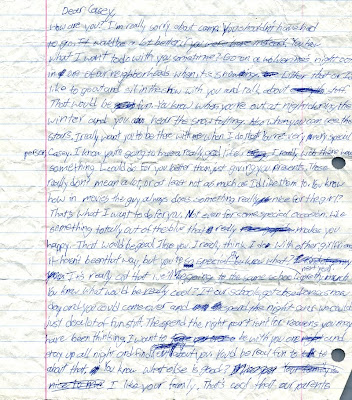 Dear Casey,
How are you? I'm really sorry about camp. You shouldn't have had
to go. It would be a lot better if you were here instead. You know
what I want to do with you sometime? Go on a walk or
in our neighborhoods when it's snowing. Later that
like to go out and sit in the snow with you and talk about stuff.
That would be fun. You know when you're out at night during the
winter and you can hear the snow falling. And when you can see the
stars. I really want you to be there with me when I do that. You're very, very special
person, Casey. I know you're going to have a really good I really wish there was
something I could do for you better than just giving you presents. Those
really don't mean a lot, or at least not as much as I'd like them to. You know
how in movies the guy always does something really nice for the girl?
That's what I want to do for you. Not even for some special occasion. Like
something totally out of the blue that really makes you
happy. That would be good. I love you I really think I do. With other girls
it hasn't been that way, but you're so special. You know what?
It's really cool that we'll be going to the same school next year
You know what would be really cool? If our school gets out a snow
day and you could come over and spend the night and we could
just do a lot of fun stuff. The spend the night part isn't for reasons you may
have been thinking. I want to be with you and
stay up all night and find out about you. You'd be real fun to
about that. You know what else is good?
I like your family. That's cool that our parents